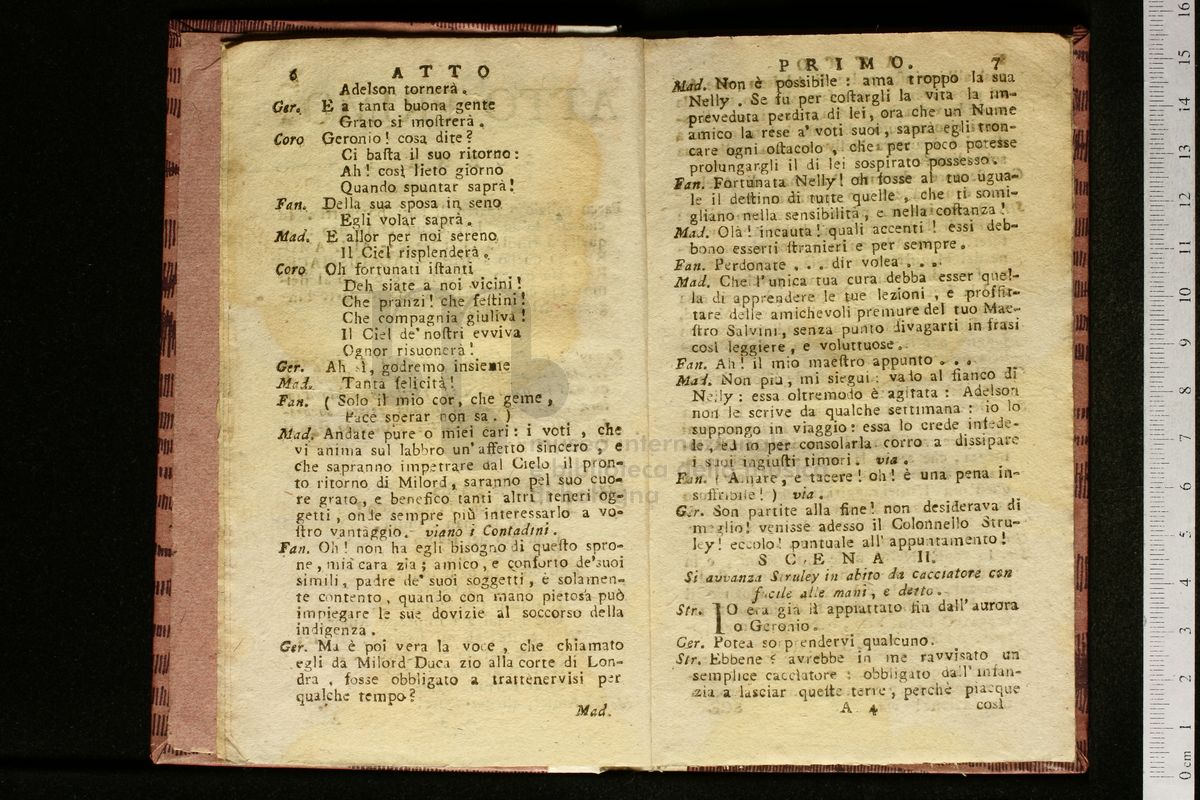 6 ATTO
Adelson tornerà.
Ger. E a tanta buona gente
Grato si moſtrerà.
Coro Geronio! cosa dite?
Ci baſta il suo ritorno:
Ah! così lieto giorno
Quando spuntar saprà!
Fan. Della sua sposa in seno
Egli volar saprà.
Mad. E allor per noi sereno
Il Ciel risplenderà.
Coro Oh fortunati iſtanti
Deh siate a noi vicini!
Che pranzi! che feſtini!
Che compagnia giuliva!
Il Ciel de' noſtri evviva
Ognor risuonerà!
Ger. Ah sì, godremo insieme
Mad. Tanta felicità!
Fan. ( Solo il mio cor, che geme,
Pace sperar non sa. )
Mad. Andate pure o miei cari: i voti, che
vi anima sul labbro un'affetto sincero, e
che sapranno impetrare dal Cielo il pron-
to ritorno di Milord, saranno pel suo cuo-
re grato, e benefico tanti altri teneri og-
getti, onde sempre più interessarlo a vo-
ſtro vantaggio. viano i Contadini.
Fan. Oh! non ha egli bisogno di queſto spro-
ne, mia cara zia; amico, e conforto de'suoi
simili, padre de' suoi soggetti, è solamen-
te contento, quando con mano pietosa può
impiegare le sue dovizie al soccorso della
indigenza.
Ger. Ma è poi vera la voce, che chiamato
egli da Milord Duca zio alla corte di Lon-
dra, fosse obbligato a trattenervisi per
qualche tempo?
Mad.
PRIMO. 7
Mad. Non è possibile: ama troppo la sua
Nelly. Se fu per coſtargli la vita la im-
preveduta perdita di lei, ora che un Nume
amico la rese a' voti suoi, saprà egli tron-
care ogni oſtacolo, che per poco potesse
prolungargli il di lei sospirato possesso.
Fan. Fortunata Nelly! oh fosse al tuo ugua-
le il deſtino di tutte quelle, che ti somi-
gliano nella sensibilità, e nella coſtanza!
Mad. Olà! incauta! quali accenti! essi deb-
bono esserti ſtranieri e per sempre.
Fan. Perdonate ... dir volea ....
Mad. Che l'unica tua cura debba esser quel-
la di apprendere le tue lezioni, e profit-
tare delle amichevoli premure del tuo Mae-
ſtro Salvini, senza punto divagarti in frasi
così leggiere, e voluttuose.
Fan. Ah! il mio maeſtro appunto ....
Mad. Non più, mi siegui: vado al fianco di
Nelly: essa oltremodo è agitata: Adelson
non le scrive da qualche settimana: io lo
suppongo in viaggio: essa lo crede infede-
le, ed io per consolarla corro a dissipare
i suoi ingiuſti timori. via.
Fan. ( Amare, e tacere! oh! è una pena in-
soffribile! ) via.
Ger. Son partite alla fine! non desiderava di
meglio! venisse adesso il Colonnello Stru-
ley! eccolo! puntuale all' appuntamento!
SCENA II.
Si avvanza Struley in abito da cacciatore con
fucile alle mani, e detto.
Str. IO era già lì appiattato fin dall'aurora
o Geronio.
Ger. Potea sorprendervi qualcuno.
Str. Ebbene? avrebbe in me ravvisato un
semplice cacciatore: obbligato dall'infan-
zia a lasciar queſte terre, perchè piacque
A 4 così